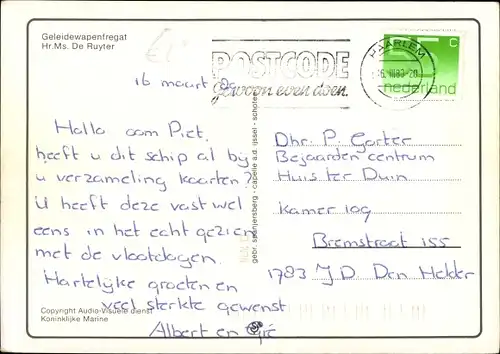 Geleidewapenfregat
Hr.Ms. De Ruyter
16 maart '89
Hallo oom Piet,
heeft u dit schip al bij
u verzameling kaarten?
U heeft deze vast wel
eens in het echt gezien
met de vlootdagen.
Hartelijke groeten en
veel sterkte gewenst
Albert en
Copyright Audio-Visuele dienst
Koninklijke Marine
gebr. spanjersberg - capelle a.d. ijssel - schoten
POSTCODE
gewoon even doen.
HAARLEM
C
nederland
Dhr. P. Gorter
Bejaarden centrum
Huis ter Duin
Kamer 109
Bremstraat 155
1783 J.D. Den Helder